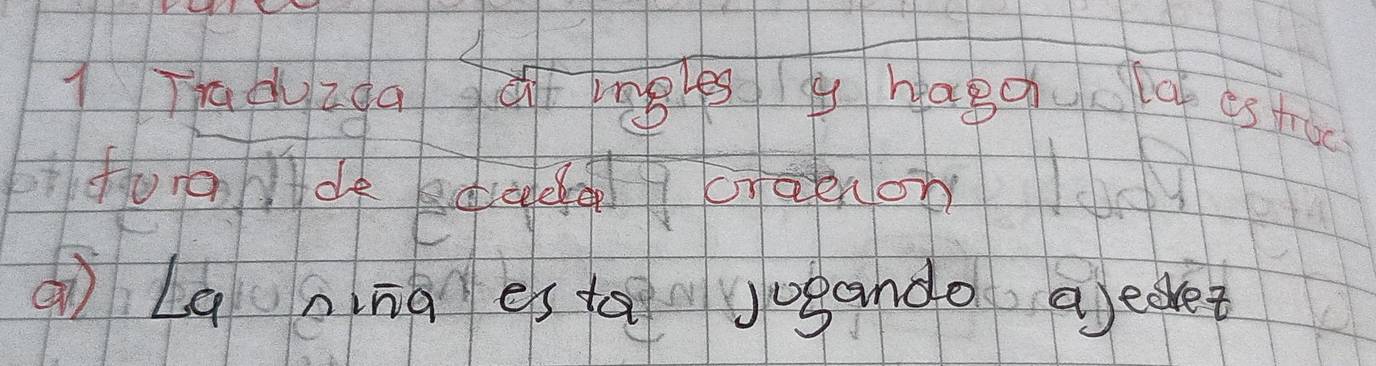 1 Traduzca al ingles y haga la estruc
tura de cada oracion
a) La niña esta jugando ajedrez